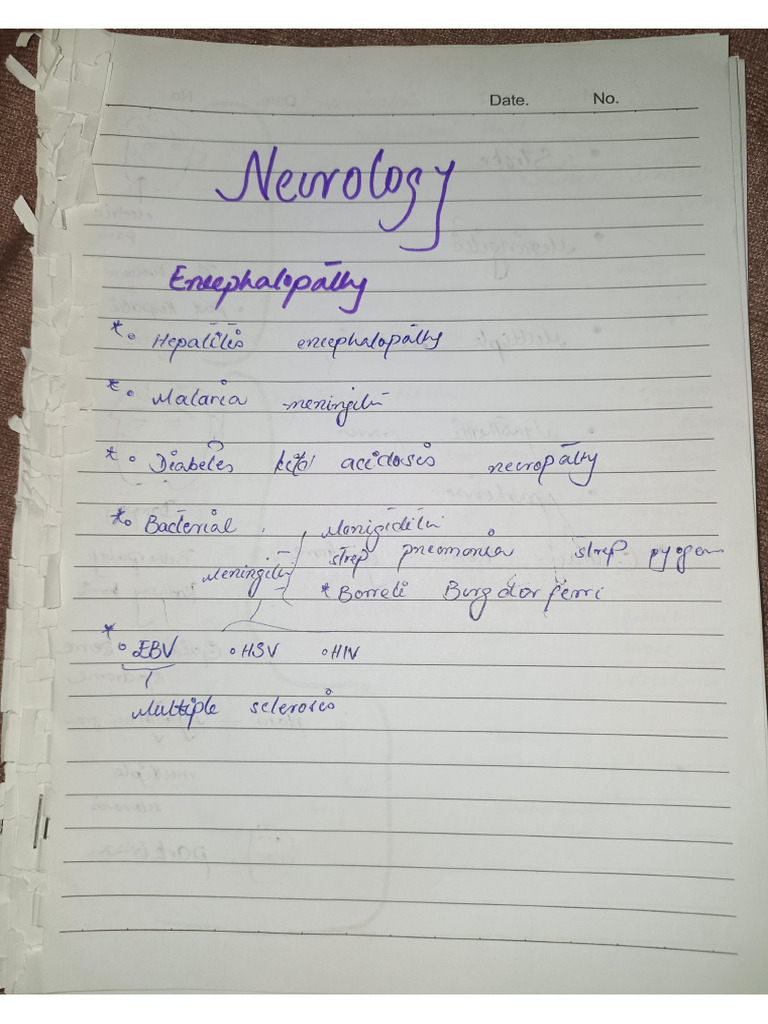 Date. No.
Neurology
Encephalopathy
*• Hepatitis encephalopathy
*• Malaria meningiti
*• Diabetes acidosis neuropathy
*• Bacterial Menigiditi
strep pneomonia strep pyogen
Meningiti
* Borreli Burgdorferri
*
• EBV • HSV • HIV
Multiple sclerosis